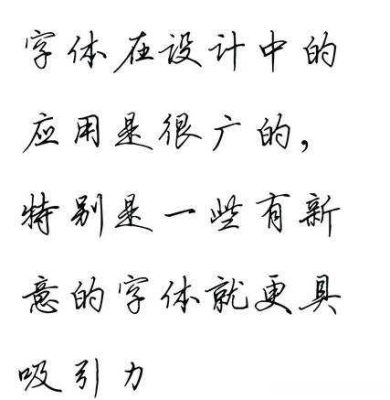 字体在设计中的
应用是很广的，
特别是一些有新
意的字体就更具
吸引力